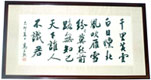 千里黄雲
白日曛北
風吹雁雪
紛紛莫愁前
路無知己
天下誰人
不識君